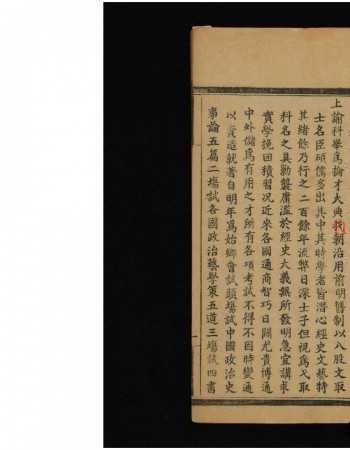 上諭科舉爲掄才大典我朝沿用前明舊制以八股文取
士名臣碩儒多出其中其時學者皆潛心經史文藝特
其緒餘乃行之二百餘年流弊日深士子但視爲弋取
科名之具勦襲庸濫於經史大義無所發明急宜講求
實學挽回積習況近來各國通商智巧日闢尤貴博通
中外儲爲有用之才所有各項考試不得不因時變通
以資造就著自明年爲始鄉會試頭場試中國政治史
事論五篇二場試各國政治藝學策五道三場試四書